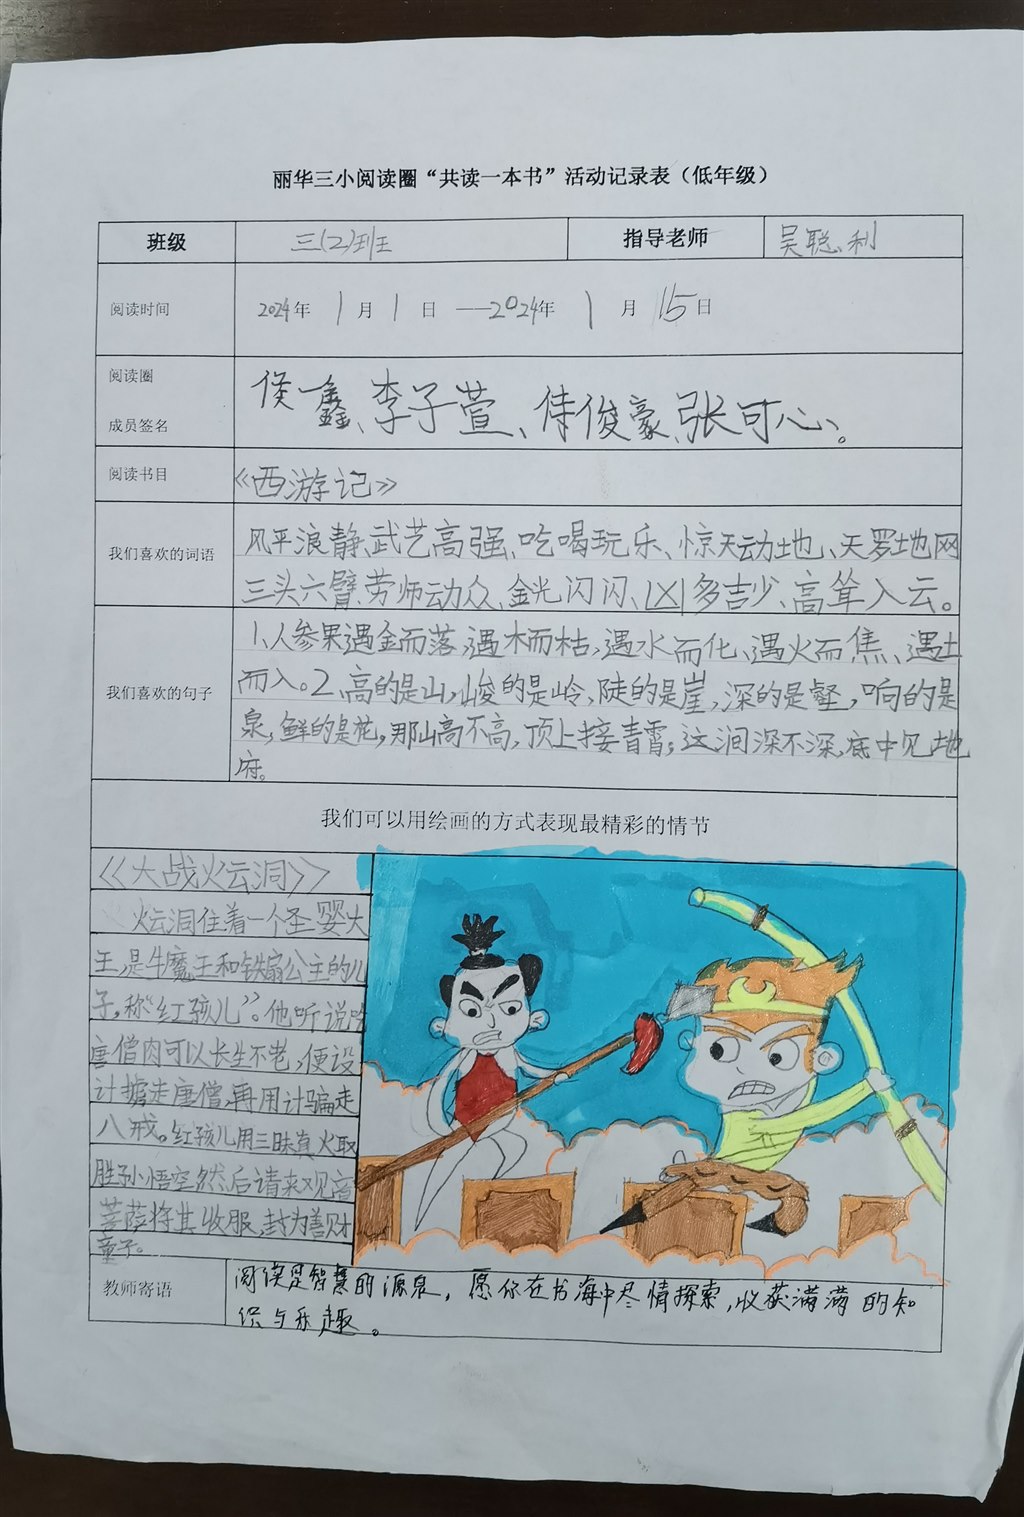 丽华三小阅读圈“共读一本书”活动记录表（低年级）
班级 三(2)班 指导老师 吴聪利
阅读时间 2024年 1月 1日 ——2024年 1月 15日
阅读圈
成员签名
侯一鑫、李子萱、侍俊豪、张可心。
阅读书目 《西游记》
我们喜欢的词语
风平浪静、武艺高强、吃喝玩乐、惊天动地、天罗地网
三头六臂、劳师动众、金光闪闪、凶多吉少、高耸入云。
我们喜欢的句子
1、人参果遇金而落，遇木而枯，遇水而化、遇火而焦、遇土
而入。2、高的是山，峻的是岭，陡的是崖，深的是壑，响的是
泉，鲜的是花，那山高不高，顶上接青霄；这涧深不深，底中见地
府。
我们可以用绘画的方式表现最精彩的情节
《大战火云洞》
火云洞住着一个圣婴大
王，是牛魔王和铁扇公主的儿
子，称“红孩儿”。他听说吃
唐僧肉可以长生不老，便设
计掳走唐僧，再用计骗走
八戒。红孩儿用三昧真火取
胜孙悟空，然后请来观音
菩萨将其收服，封为善财
童子。
教师寄语
阅读是智慧的源泉，愿你在书海中尽情探索，收获满满的知
识与乐趣。